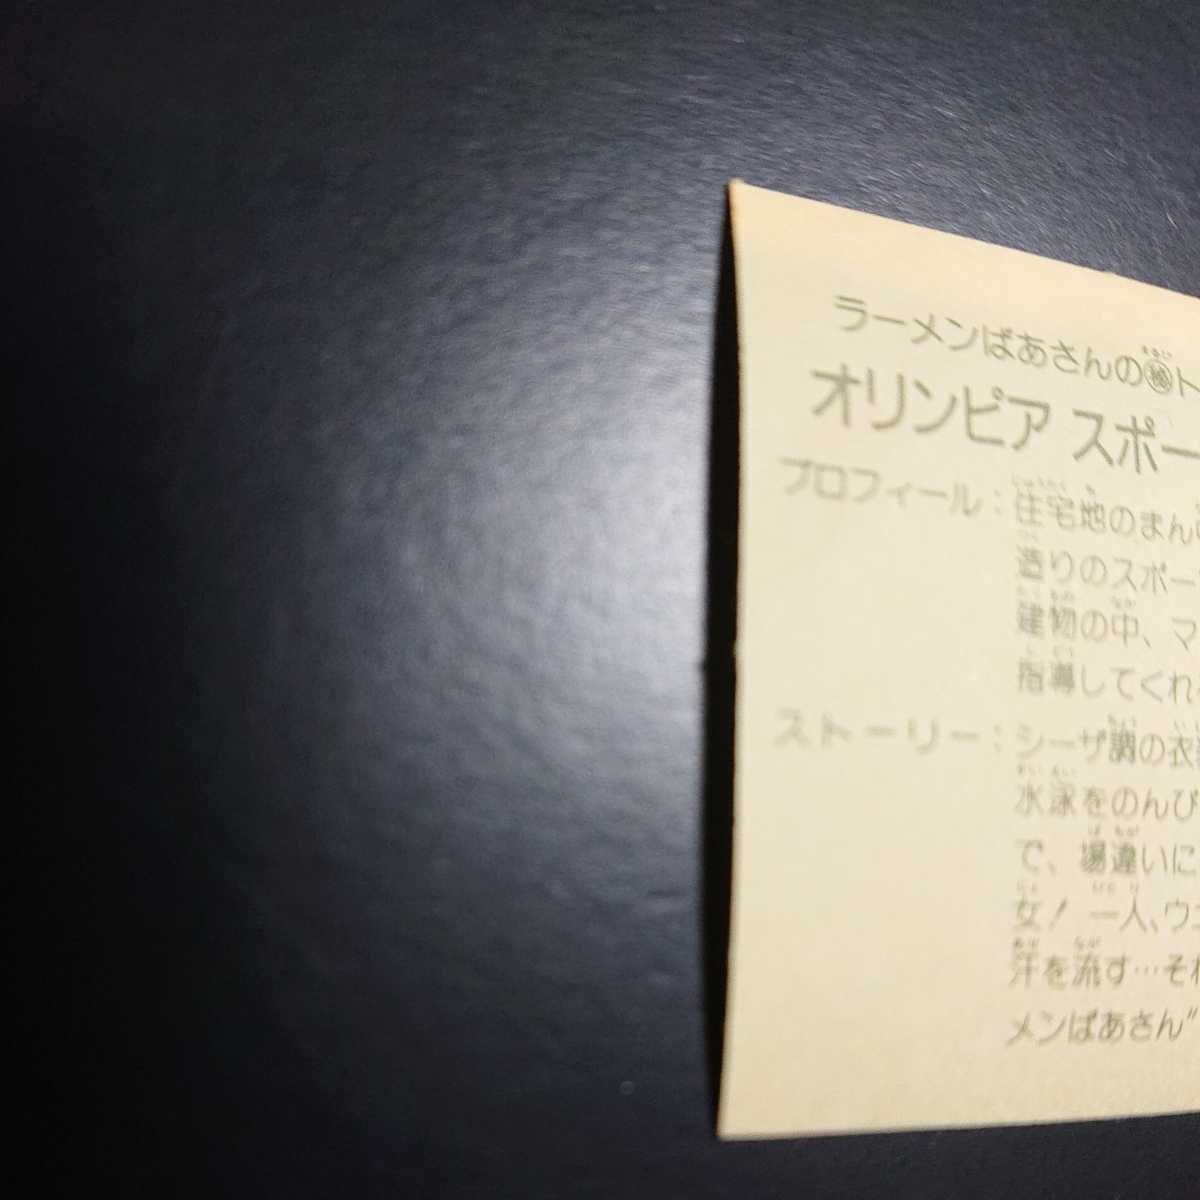 ラーメンばあさんの㊙ト
オリンピア スポー
プロフィール：住宅地のまん
造りのスポー
建物の中、マ
指導してくれ
ストーリー：シーザ調の衣
水泳をのんび
で、場違いに
女！ 一人、ウ
汗を流す…それ
メンばあさん”